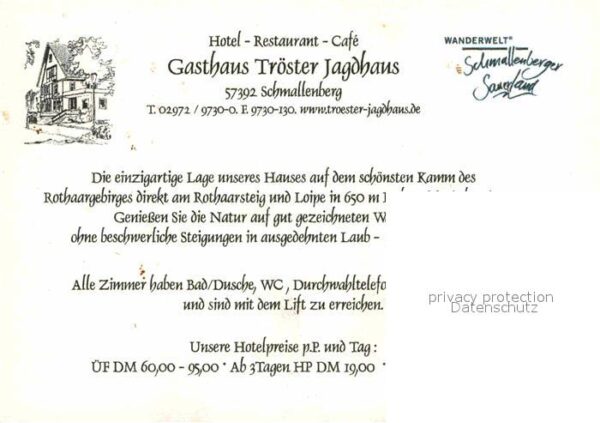 Hotel - Restaurant - Café
Gasthaus Tröster Jagdhaus
57392 Schmallenberg
T. 02972 / 9730-0. F. 9730-130. www.troester-jagdhaus.de
WANDERWELT
Schmallenberger
Sauerland
Die einzigartige Lage unseres Hauses auf dem schönsten Kamm des
Rothaargebirges direkt am Rothaarsteig und Loipe in 650 m
Genießen Sie die Natur auf gut gezeichneten W
ohne beschwerliche Steigungen in ausgedehnten Laub -
Alle Zimmer haben Bad/Dusche, WC, Durchwahltelefo
und sind mit dem Lift zu erreichen.
privacy protection
Datenschutz
Unsere Hotelpreise p.P. und Tag :
ÜF DM 60,00 - 95,00 * Ab 3Tagen HP DM 19,00 *